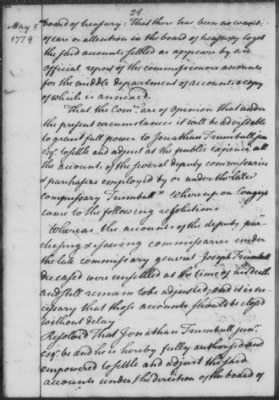 24
May 5
1779
board of treasury: That there has been no want
of care or attention in the board of treasury to get
the said accounts settled as appears by an
official report of the commissioners accounts
for the middle department of accounts a copy
of which is annexed."
That the Comee. are of Opinion that under
the present circumstances it will be adviseable
to grant full power to Jonathan Trumbull jun
esqr. to settle and adjust at the public expence all
the accounts of the several deputy commissaries
& purchasers employed by or under the late
commissary Trumbull" Whereupon Congress
came to the following resolutions.
Whereas the accounts of the deputy pur-
chasing & issuing commissaries under
the late commissary general Joseph Trumbull
deceased were unsettled at the time of his death
and still remain to be adjusted, and it is ne-
cessary that those accounts should be closed
without delay
Resolved That Jonathan Trumbull junr.
esqr. be and he is hereby fully authorised and
empowered to settle and adjust the said
accounts under the direction of the board of